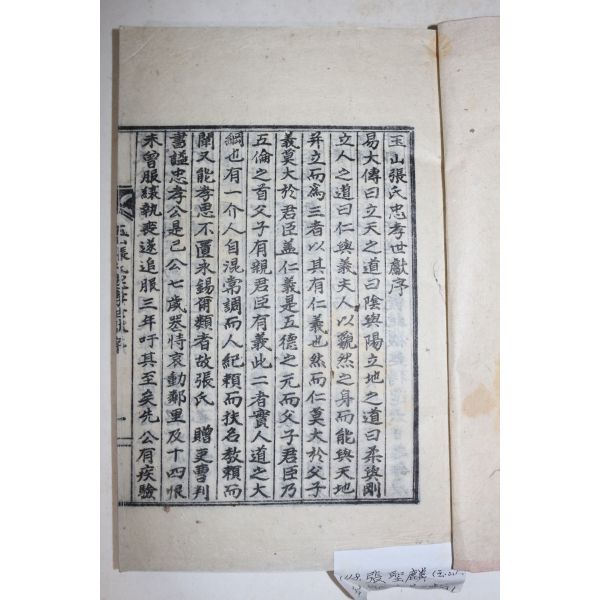 玉山張氏忠孝世獻序
易大傳曰立天之道曰陰與陽立地之道曰柔與剛
立人之道曰仁與義夫人以藐然之身而能與天地
並立而爲三者以其有仁義也然而仁莫大於父子
義莫大於君臣盖仁義是五德之元而父子君臣乃
五倫之首父子有親君臣有義此二者實人道之大
綱也有一介人自混常調而人紀賴而扶名教賴而
闡又能孝思不匱永錫爾類者故張氏 贈吏曹判
書謚忠孝公是已公七歲丧恃哀動鄰里及十四恨
未曾服縗執喪遂追服三年吁其至矣先公有疾驗
張聖麟